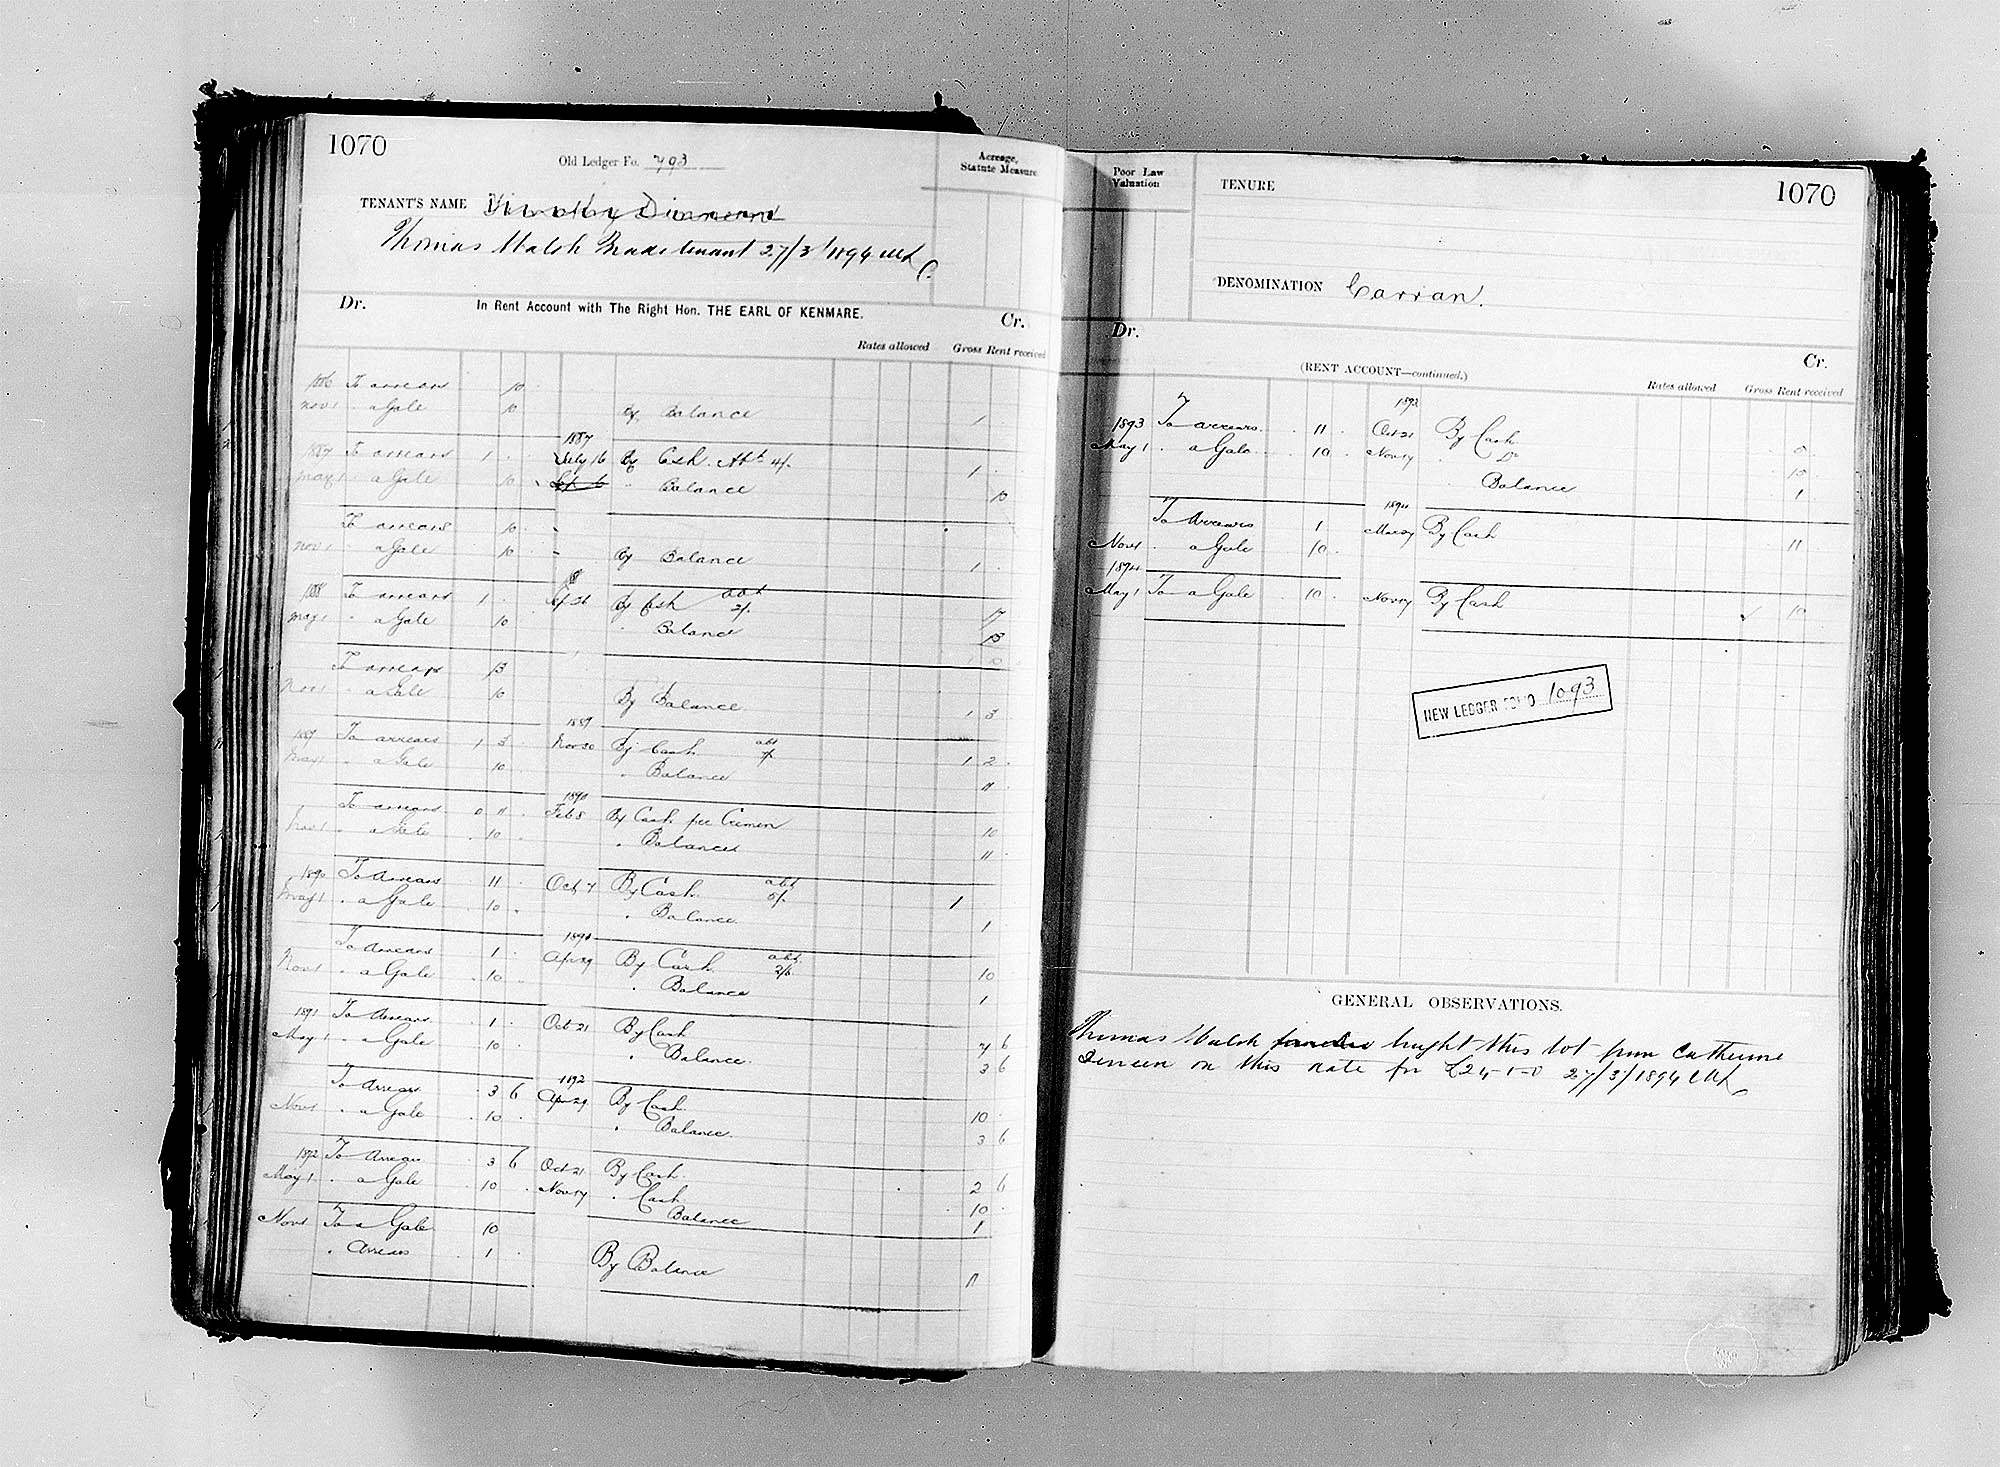 1070
Old Ledger Fo. 793
Acreage, Statute Measure
TENANT'S NAME
Thomas Walsh Made tenant 27/3/1894
Dr. In Rent Account with The Right Hon. THE EARL OF KENMARE. Cr.
Rates allowed Gross Rent received
1886 To arrears 10
Nov 1 " a Gale 10 By Balance 1
1887 To arrears 1 1887 July 16 By Cash Abt 4/- 1
May 1 " a Gale 10 " Balance 10
To arrears 10
Nov 1 " a Gale 10 By Balance 1
1888 To arrears 1 Sep 26 By Cash abt 2/- 17
May 1 " a Gale 10 " Balance 13
To arrears 13
Nov 1 " a Gale 10 By Balance 1 3
1889 To arrears 1 3 1889 Nov 30 By Cash abt 1 2
May 1 " a Gale 10 " Balance 11
To arrears 0 11 1890 Feb 8 By Cash per 10
Nov 1 " a Gale 10 " Balance 11
1890 To Arrears 11 Oct 7 By Cash abt 5/- 1
May 1 " a Gale 10 " Balance 1
To Arrears 1 1891 Apr 29 By Cash abt 2/6 10
Nov 1 " a Gale 10 " Balance 1
1891 To Arrears 1 Oct 21 By Cash 7 6
May 1 " a Gale 10 " Balance 3 6
To Arrears 3 6 1892 Apr 29 By Cash 10
Nov 1 " a Gale 10 " Balance 3 6
1892 To Arrears 3 6 Oct 21 By Cash 2 6
May 1 " a Gale 10 Nov 17 " Cash 10
Balance 1
Nov 1 To a Gale 10
" Arrears 1 By Balance 11
Poor Law Valuation
TENURE
1070
DENOMINATION Carran.
Dr. (RENT ACCOUNT—continued.) Cr.
Rates allowed Gross Rent received
1893
1893 To arrears 11 Oct 21 By Cash 5
May 1 " a Gale 10 Nov 17 " Do 15
" Balance 1
1894
To Arrears 1 By Cash 11
Nov 1 " a Gale 10
1894
May 1 To a Gale 10 Nov 17 By Cash ✓ 10
NEW LEDGER FOLIO 1093
GENERAL OBSERVATIONS.
Thomas Walsh bought this lot from Catherine
on this date for 27/3/1894